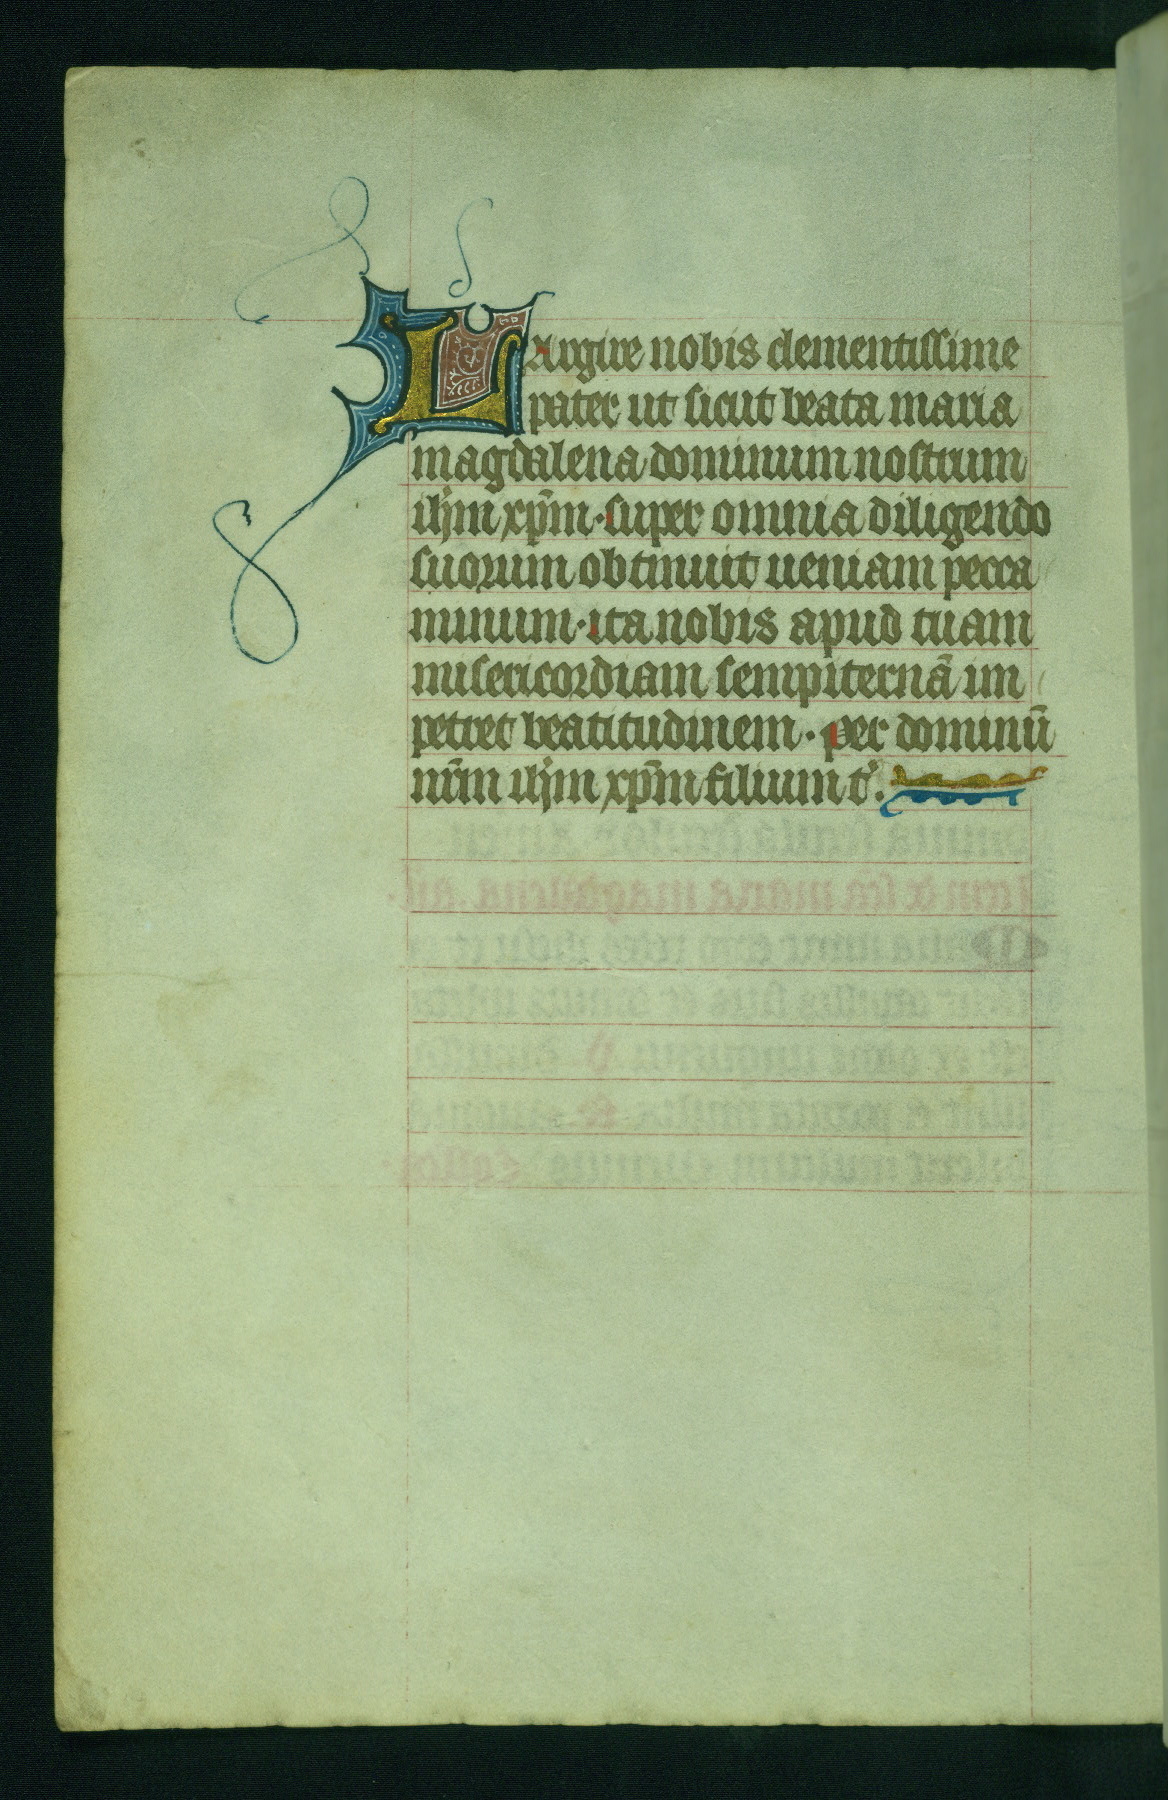 Largire nobis clementissime
pater ut sicut beata maria
magdalena dominum nostrum
ihm xpm · super omnia diligendo
suorum obtinuit ueniam pecca
minum · ita nobis apud tuam
misericordiam sempiternā im
petret beatitudinem · per dominū
nrm ihm xpm filium t.